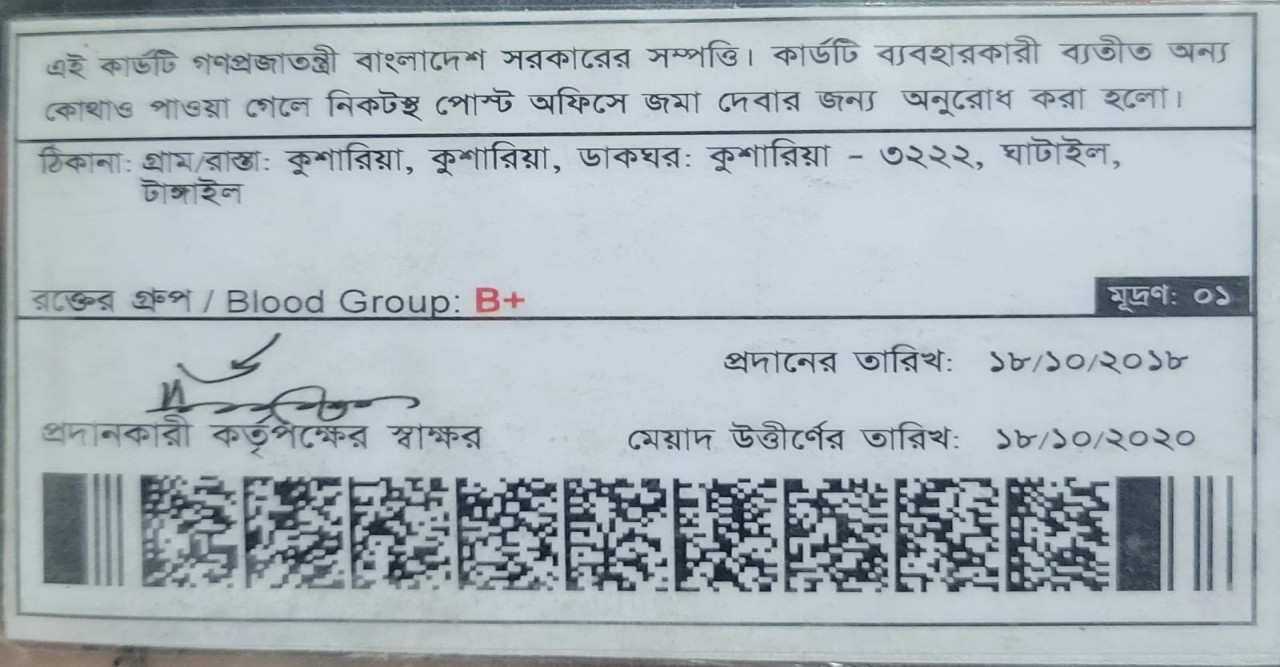 এই কার্ডটি গণপ্রজাতন্ত্রী বাংলাদেশ সরকারের সম্পত্তি। কার্ডটি ব্যবহারকারী ব্যতীত অন্য
কোথাও পাওয়া গেলে নিকটস্থ পোস্ট অফিসে জমা দেবার জন্য অনুরোধ করা হলো।
ঠিকানা: গ্রাম/রাস্তা: কুশারিয়া, কুশারিয়া, ডাকঘর: কুশারিয়া - ৩২২২, ঘাটাইল,
টাঙ্গাইল
রক্তের গ্রুপ / Blood Group: B+
মুদ্রণ: ০১
প্রদানের তারিখ: ১৮/১০/২০১৮
প্রদানকারী কর্তৃপক্ষের স্বাক্ষর
মেয়াদ উত্তীর্ণের তারিখ: ১৮/১০/২০২০